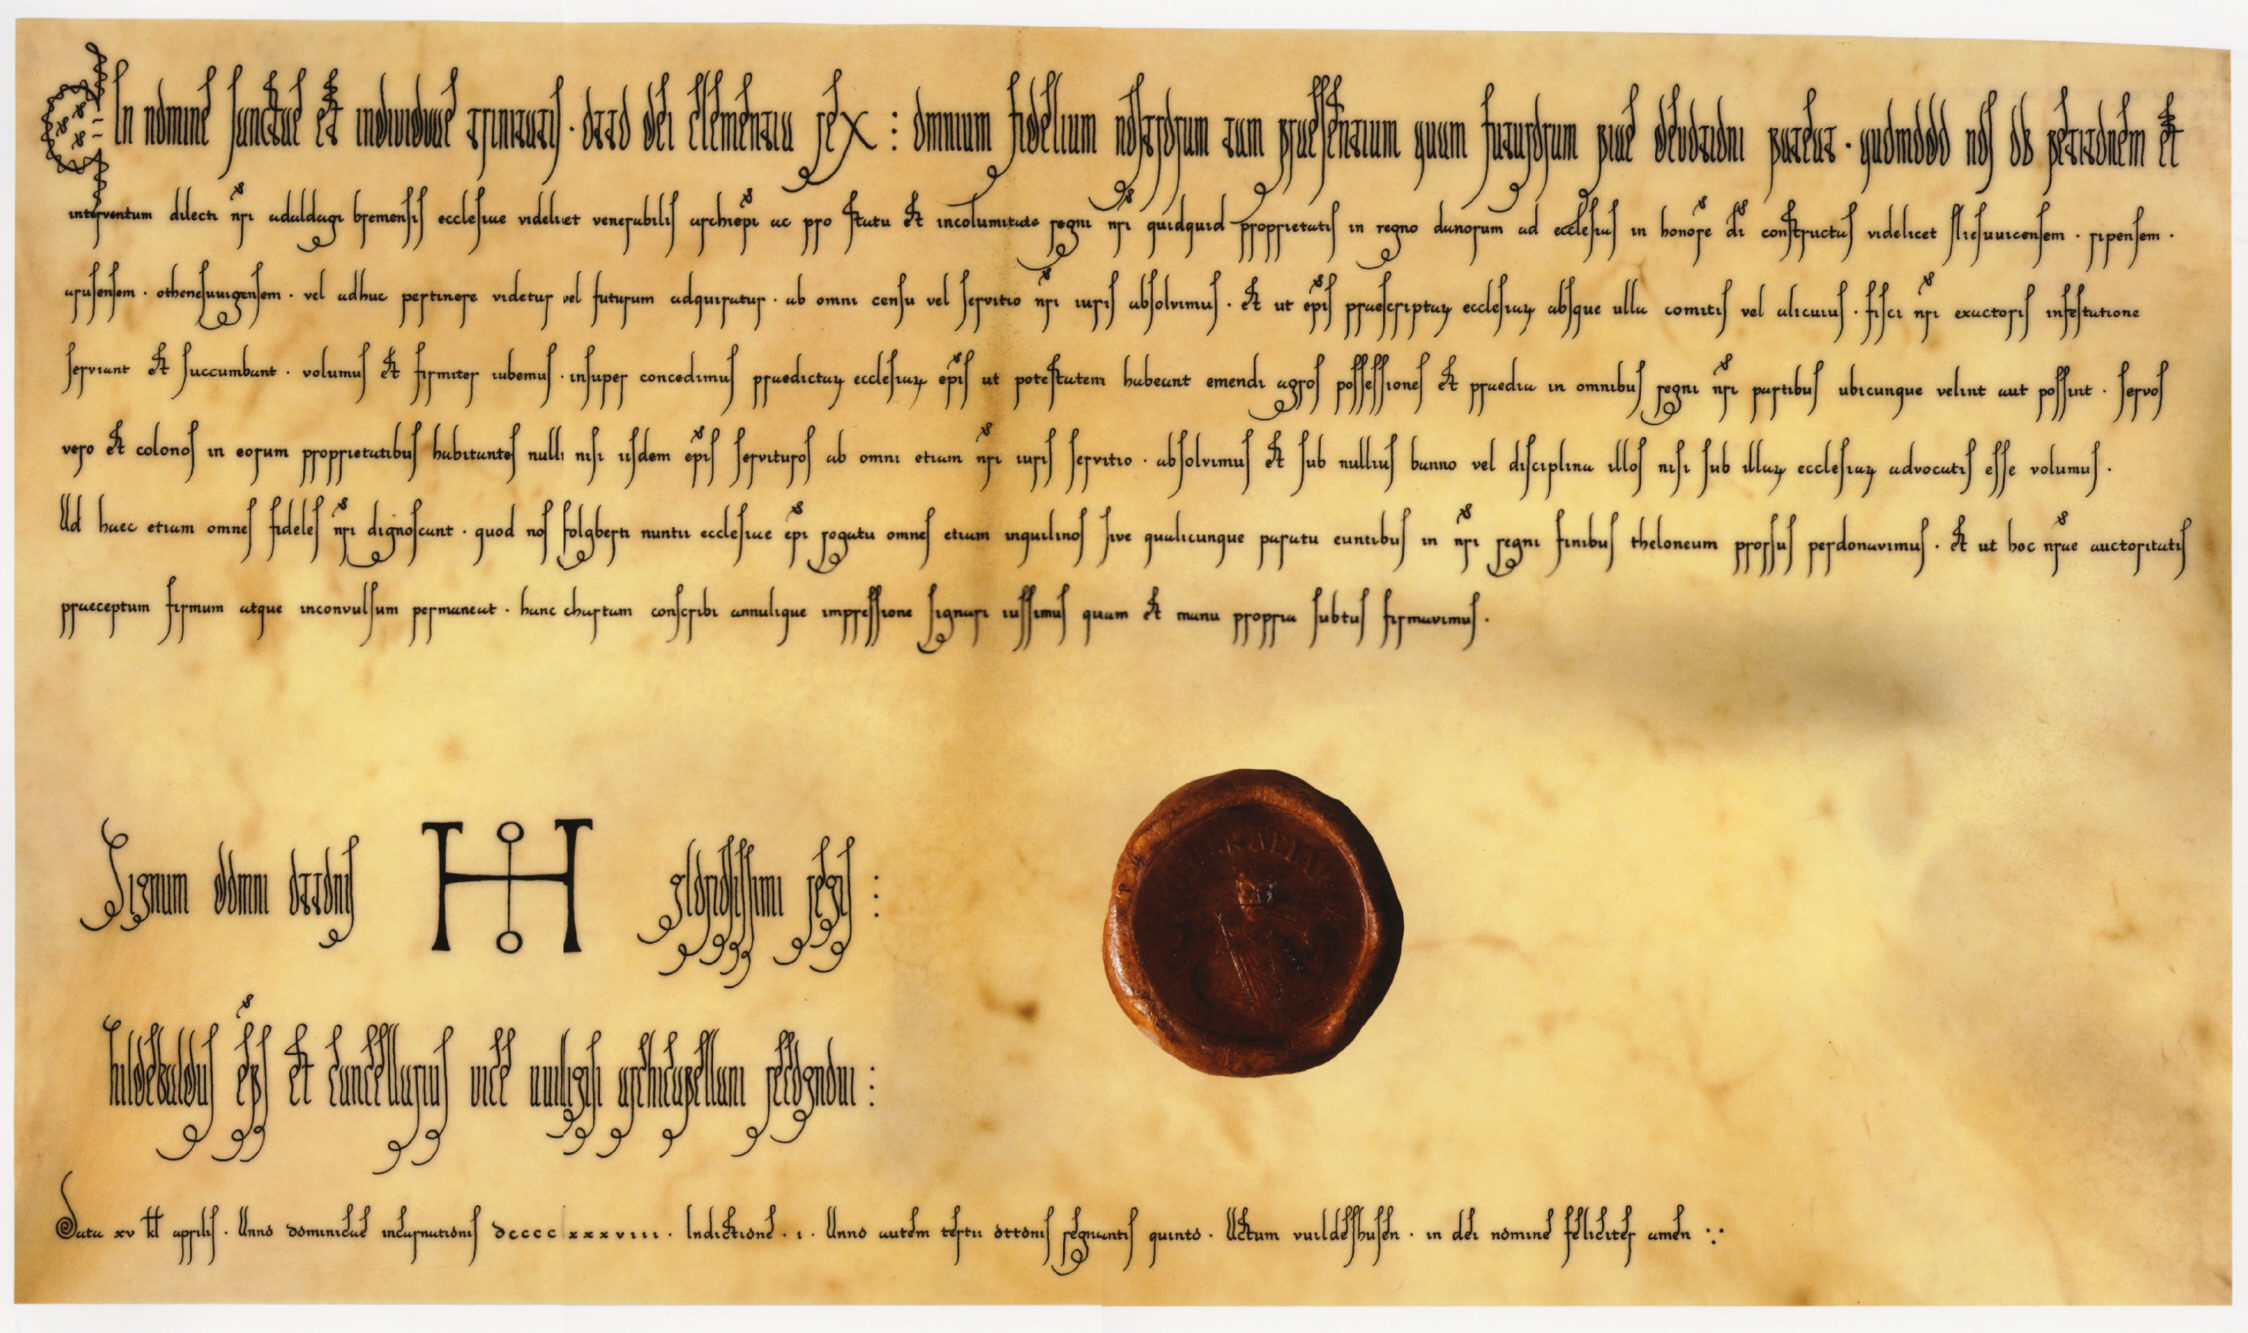 In nomine sanctae et individuae trinitatis · otto dei clementia rex : omnium fidelium nostrorum tam praesentium quam futurorum piae devotioni pateat · quomodo nos ob petitionem et
interventum dilecti nri adaldagi bremensis ecclesiae videlicet venerabilis archiepi ac pro statu et incolumitate regni nri quidquid proprietatis in regno danorum ad ecclesias in honore di constructas videlicet sliesuuicensem · ripensem ·
arusensem · othenesuuigensem · vel adhuc pertinere videtur vel futurum adquiratur · ab omni censu vel servitio nri iuris absolvimus · et ut epis praescriptaȝ ecclesiaȝ absque ulla comitis vel alicuius · fisci nri exactoris infestatione
serviant et succumbant · volumus et firmiter iubemus · insuper concedimus praedictaȝ ecclesiaȝ epis ut potestatem habeant emendi agros possessiones et praedia in omnibus regni nri partibus ubicunque velint aut possint · servos
vero et colonos in eorum proprietatibus habitantes nulli nisi iisdem epis servituros ab omni etiam nri iuris servitio · absolvimus et sub nullius banno vel disciplina illos nisi sub illaȝ ecclesiaȝ advocatis esse volumus ·
Ad haec etiam omnes fideles nri dignoscant · quod nos folgberti nuntii ecclesiae epi rogatu omnes etiam inquilinos sive qualicunque paratu euntibus in nri regni finibus theloneum prorsus perdonavimus · et ut hoc nrae auctoritatis
praeceptum firmum atque inconvulsum permaneat · hanc chartam conscribi annulique impressione signari iussimus quam et manu propria subtus firmavimus ·
Signum domni ottonis gloriosissimi regis :
hildebaldus eps et cancellarius vice uuiligisi archicapellani recognovi :
Data xv kl aprilis · Anno dominicae incarnationis dcccc lxxxviii · Indictione · i · Anno autem tertii ottonis regnantis quinto · Actum vuildeshusen · in dei nomine feliciter amen ∵